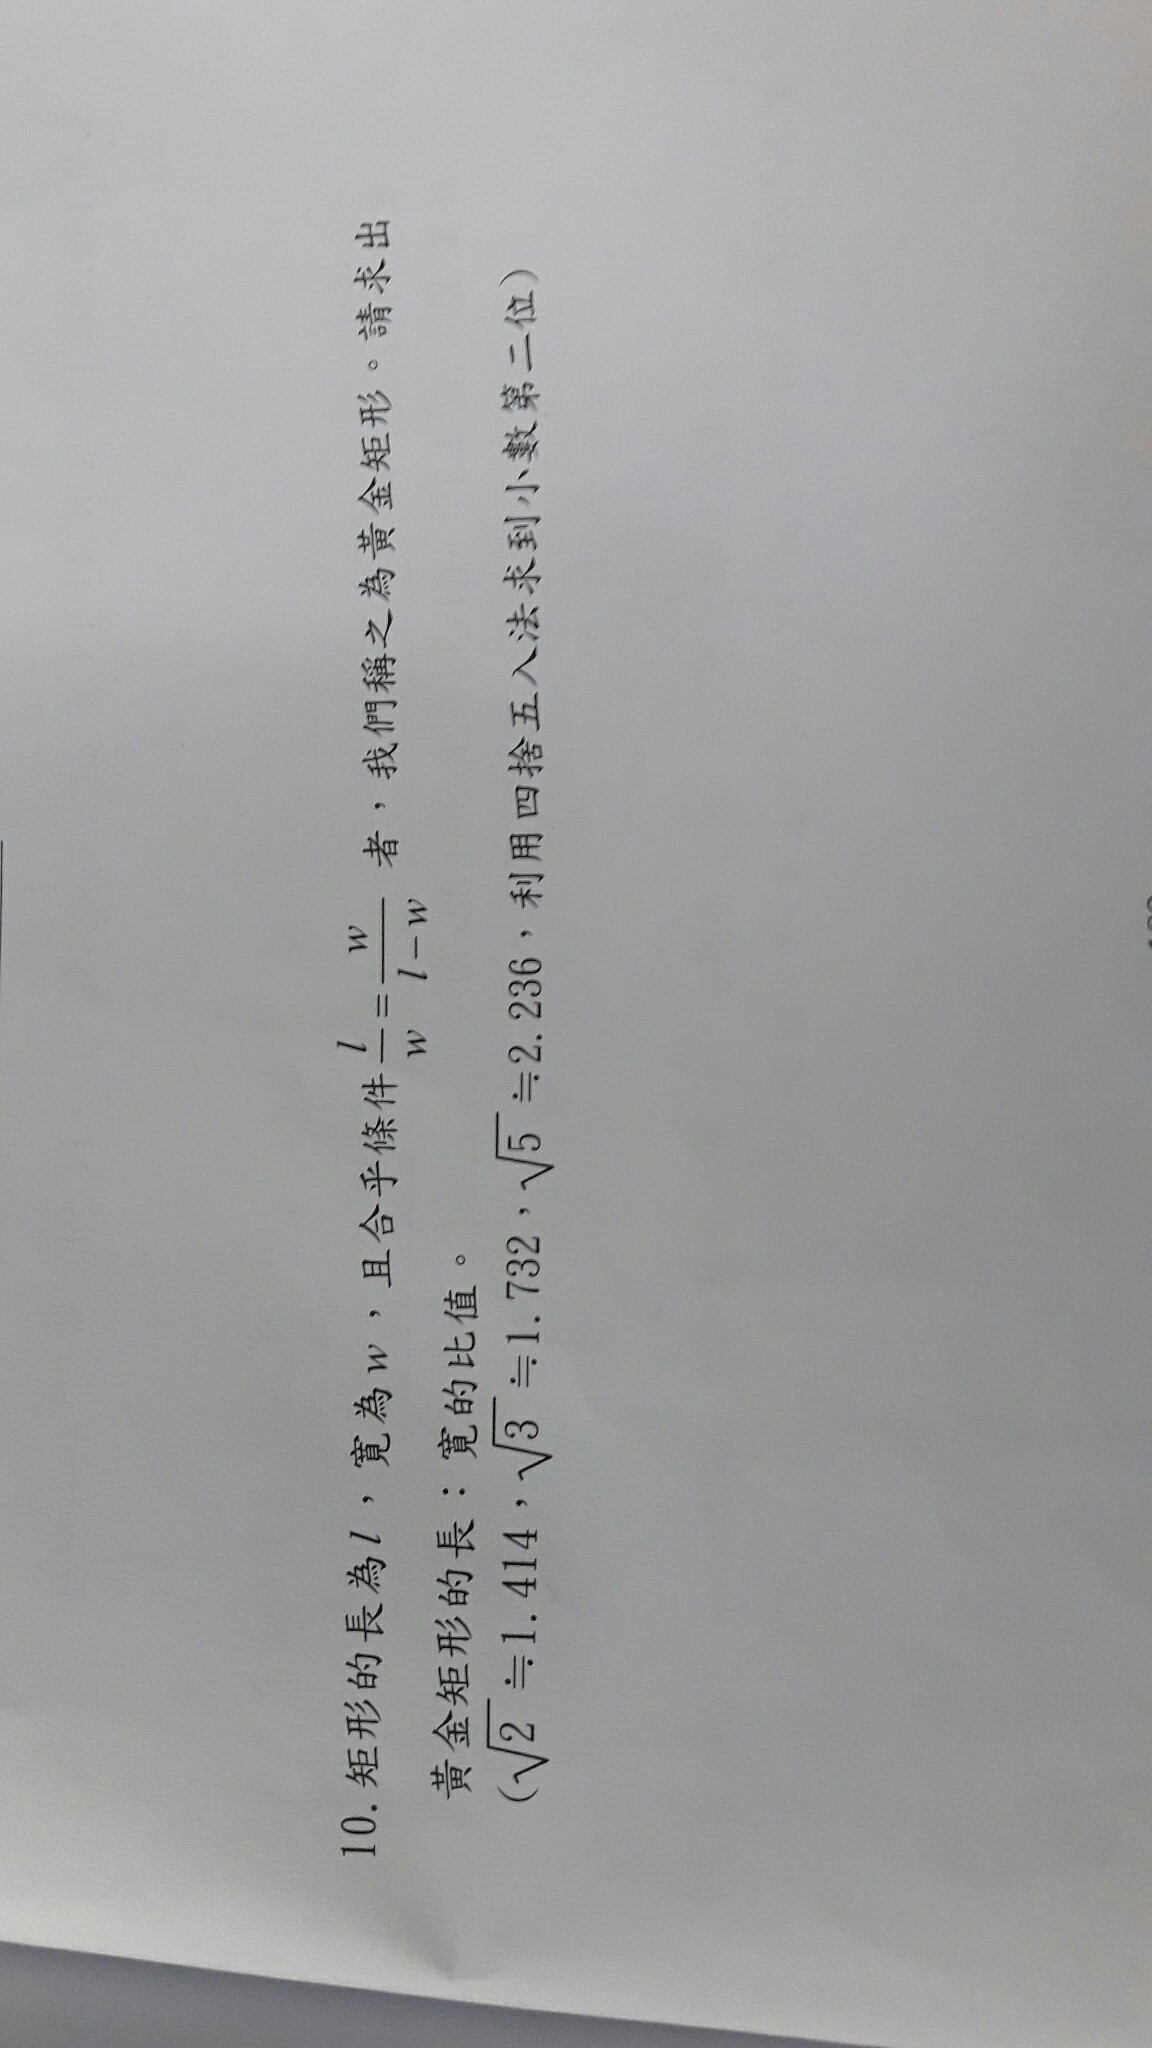 10. 矩形的長為l，寬為w，且合乎條件\frac{l}{w}=\frac{w}{l-w}者，我們稱之為黃金矩形。請求出
黃金矩形的長：寬的比值。
(√2≒1.414，√3≒1.732，√5≒2.236，利用四捨五入法求到小數第二位)